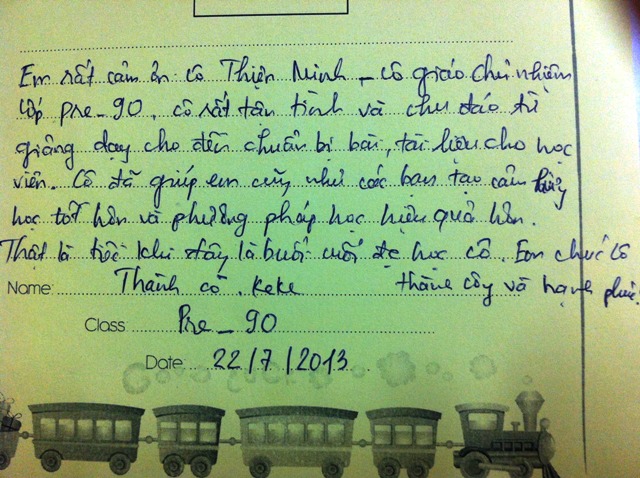 Em rất cảm ơn cô Thiện Minh - cô giáo chủ nhiệm
lớp pre-90. cô rất tận tình và chu đáo từ
giảng dạy cho đến chuẩn bị bài, tài liệu cho học
viên. Cô đã giúp em cũng như các bạn tạo cảm hứng
học tốt hơn và phương pháp học hiệu quả hơn.
Thật là tiếc khi đây là buổi cuối đc học cô. Em chúc cô
thành công và hạnh phúc!
Name: Thành cô. keke
Class: Pre-90
Date: 22/7/2013